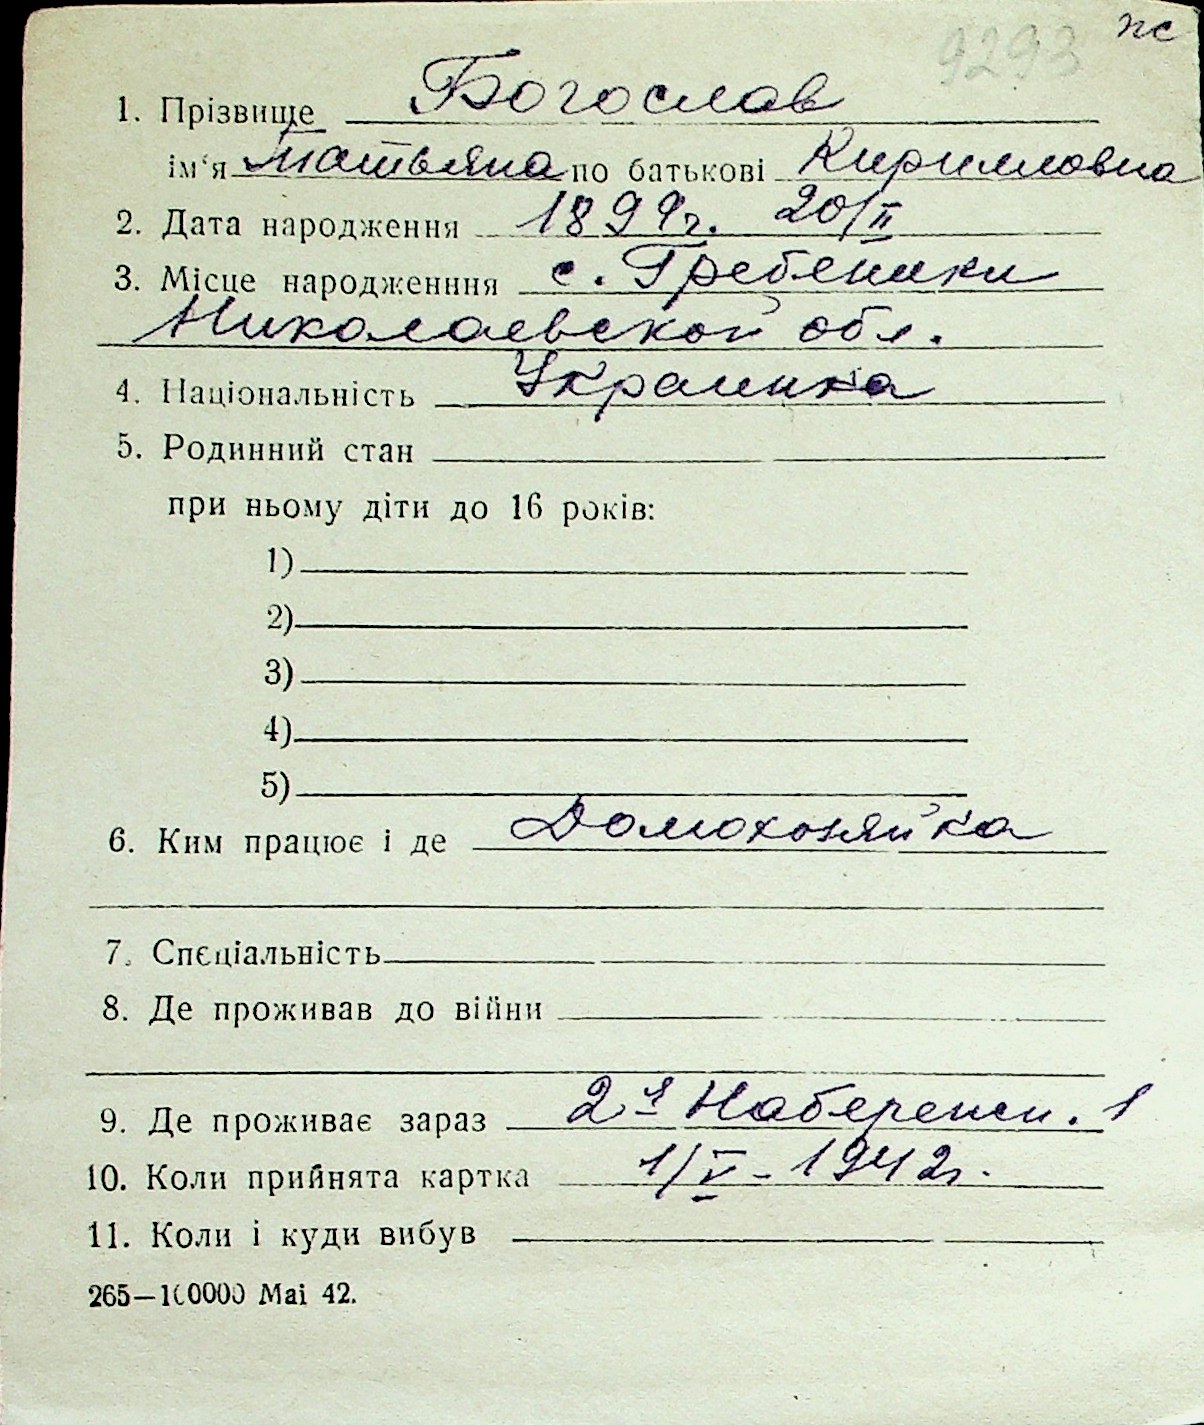 9293 жс
1. Прізвище Богослав
ім'я Татьяна по батькові Кирилловна
2. Дата народження 1899г. 20/II
3. Місце народженння с. Гребеники
Николаевской обл.
4. Національність Украинка
5. Родинний стан
при ньому діти до 16 років:
1)
2)
3)
4)
5)
6. Ким працює і де Домохозяйка
7. Спєціальність
8. Де проживав до війни
9. Де проживає зараз 2я Набережн. 1
10. Коли прийнята картка 1/V - 1942г.
11. Коли і куди вибув
265—100000 Mai 42.